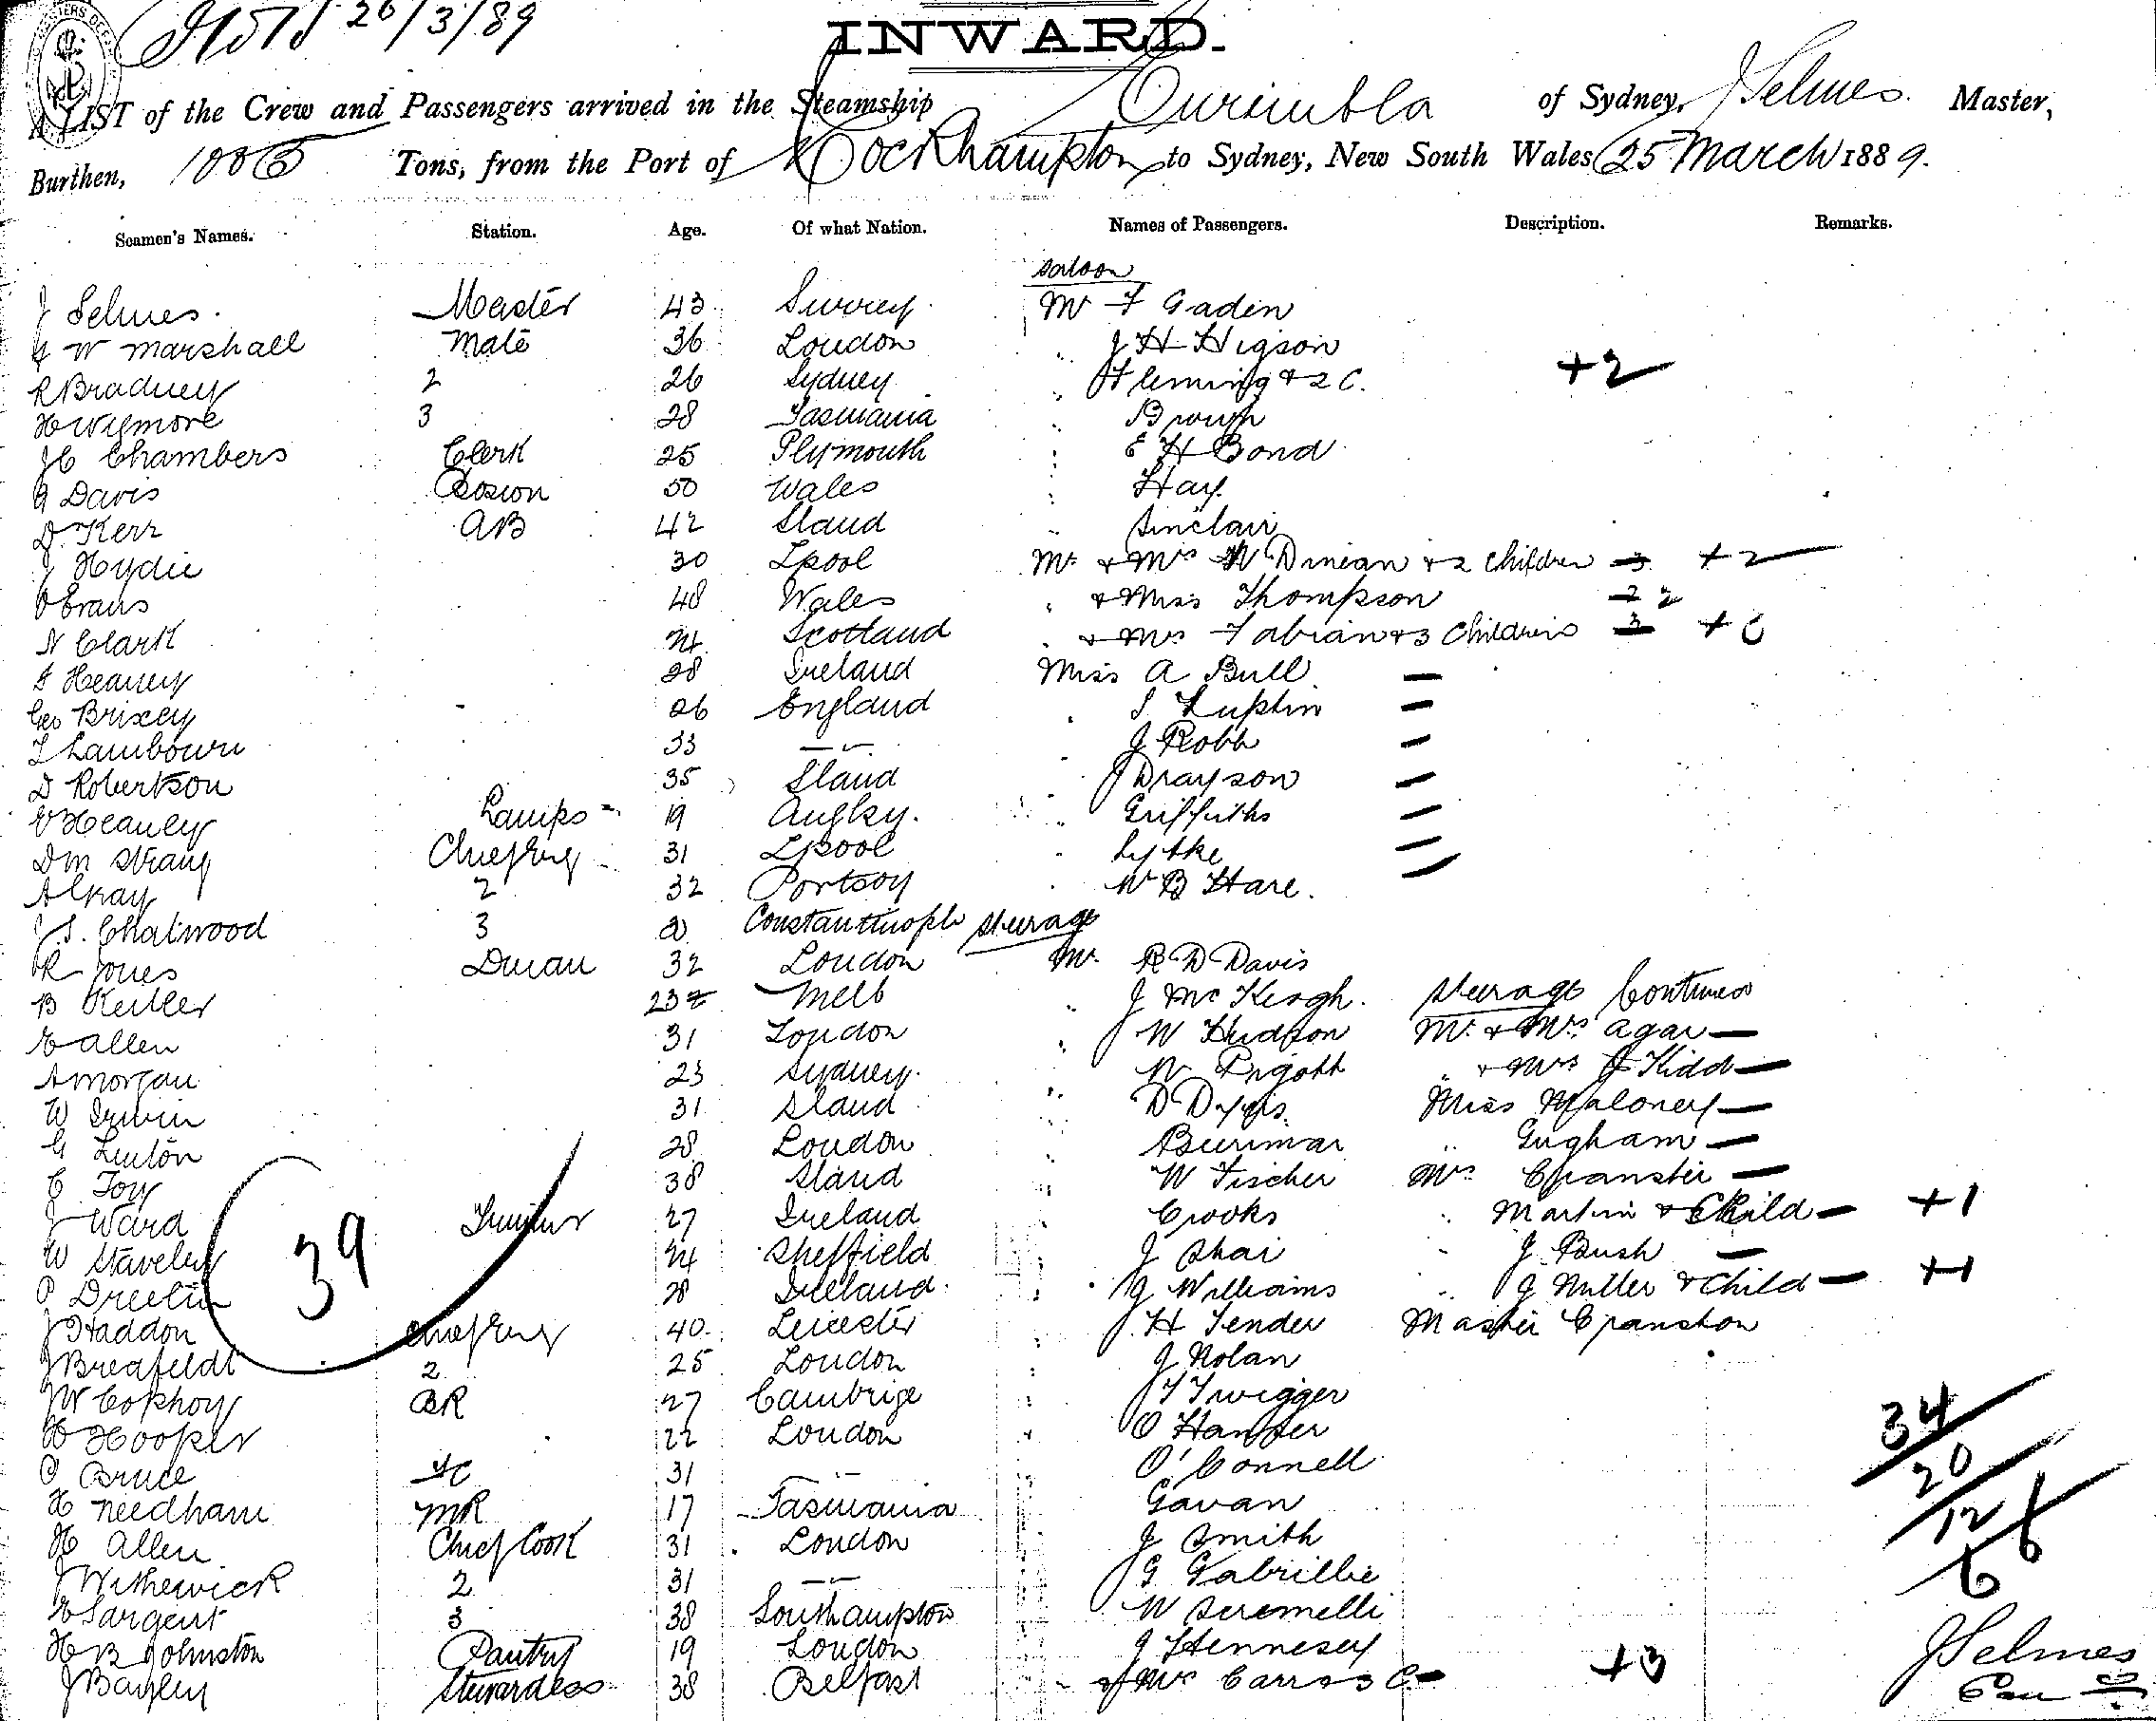 26/3/89
INWARD.
A LIST of the Crew and Passengers arrived in the Steamship Curimbla of Sydney, J Selmes. Master,
Burthen, Tons, from the Port of Rockhampton to Sydney, New South Wales 25 March 1889.
Seamen's Names. Station. Age. Of what Nation. Names of Passengers. Description. Remarks.
Saloon
J Selmes. Master 43 Surrey Mr F Gaden
G W Marshall Mate 36 London " J H Higson
R Bradney 2 26 Sydney " Fleming & 2 C. +2
H Wigmore 3 28 Tasmania " Brough
J C Chambers Clerk 25 Plymouth " E H Bond
G Davis Bosion 50 Wales " Hay
D. Kerr AB 42 Sland " Sinclair
J Hydie 30 Lpool Mr & Mrs W Duncan & 2 Children 3 +2
O Evans 48 Wales " & Miss Thompson 2 2
N Clark 24 Scotland " & Mrs Fabian & 3 Childrens 3
Heaney 28 Ireland Miss A Bull
Geo Brixey 26 England " S Luplin
Lambourn 33 —"— " J Robb
D Robertson 35 Sland " J Drayson
Heaney Lamps 19 " Griffiths
D M Strang Chief Eng 31 Lpool " Lythe
A Gray 2 32 Portsoy " W B Hare.
J. S. Chatwood 3 Constantinople Steerage
R Jones Dman 32 London Mr. R D Davis
B Keiller 23 Melb " J McKeogh. Steerage Continued
E Allen 31 London " W Hudson Mr. & Mrs Agar
A Morgan 23 Sydney " W Pigott " & Mrs J Kidd
W Irwin 31 Sland " D Dyas Miss Maloney
G Linton 28 London " " Gugham
C Foy 38 Sland " W Fischer Mrs
J Ward 27 Ireland " Crooks " Martin & Child +1
W Staveley 24 Sheffield " J Shai " J Bush
39
P 28 Ireland " J Williams " J Miller & Child +1
J Haddon Chief Eng 40 Leicester " H Tender Master Cranston
J Breafeldt 2 25 London " J Nolan
J W Cophoy BR 27 Cambrige " T Twigger
Hooper 22 London " O Hanfer
34
P Bruce 31 —"— " O'Connell
20
H Needham MR 17 Tasmania " Gavan
12
H Allen Chief Cook 31 London " J Smith
6
J Witherwick 2 31 —"— " G Gabrillie
6
E Sargent 3 38 Southampton " W Seremelli
H B Johnston Pantry 19 London " J Hennesey
J Selmes
J Bayley Stewardess 38 Belfast " & Mrs Carr & 3 C. +3